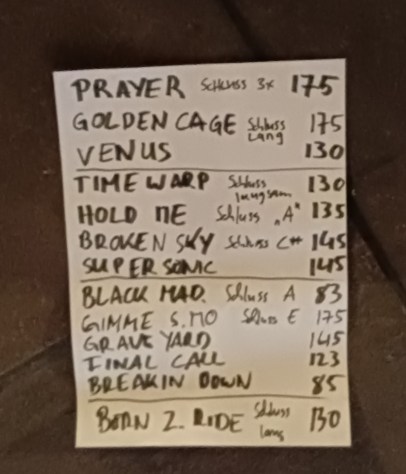 PRAYER Schluss 3x 175
GOLDEN CAGE Schluss Lang 175
VENUS 130
TIME WARP Schluss langsam 130
HOLD ME Schluss „A" 135
BROKEN SKY Schluss C# 145
SUPERSONIC 145
BLACK MAD. Schluss A 83
GIMME S.MO Schluss E 175
GRAVE YARD 145
FINAL CALL 123
BREAKIN DOWN 85
BORN 2. RIDE Schluss lang 130